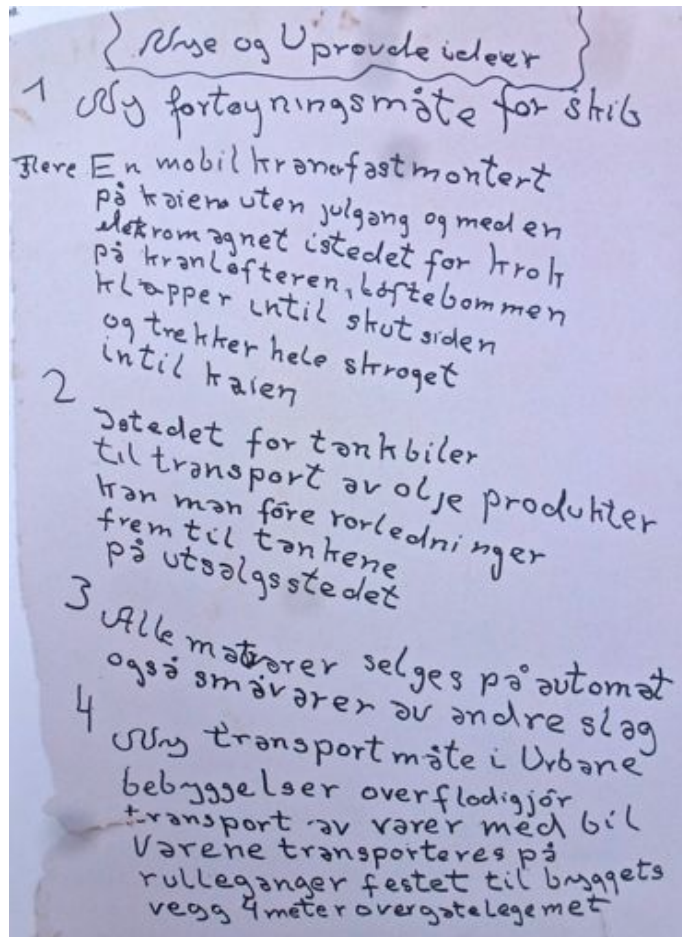 Nye og Uprøvde ideer
1 Ny fortøyningsmåte for skib
Flere En mobil kran fastmontert
på kaien uten julgang og med en
elektromagnet istedet for krok
på kranløfteren, Løftebommen
klapper intil skutsiden
og trekker hele skroget
intil kaien
2
Istedet for tankbiler
til transport av olje produkter
kan man före rorledninger
frem til tankene
på utsalgsstedet
3 Alle matvarer selges på automat
også småvarer av andre slag
4
Ny transportmåte i Urbane
bebyggelser overflodigjör
transport av varer med bil
Varene transporteres på
rulleganger festet til byggets
vegg 4 meter over gatelegemet